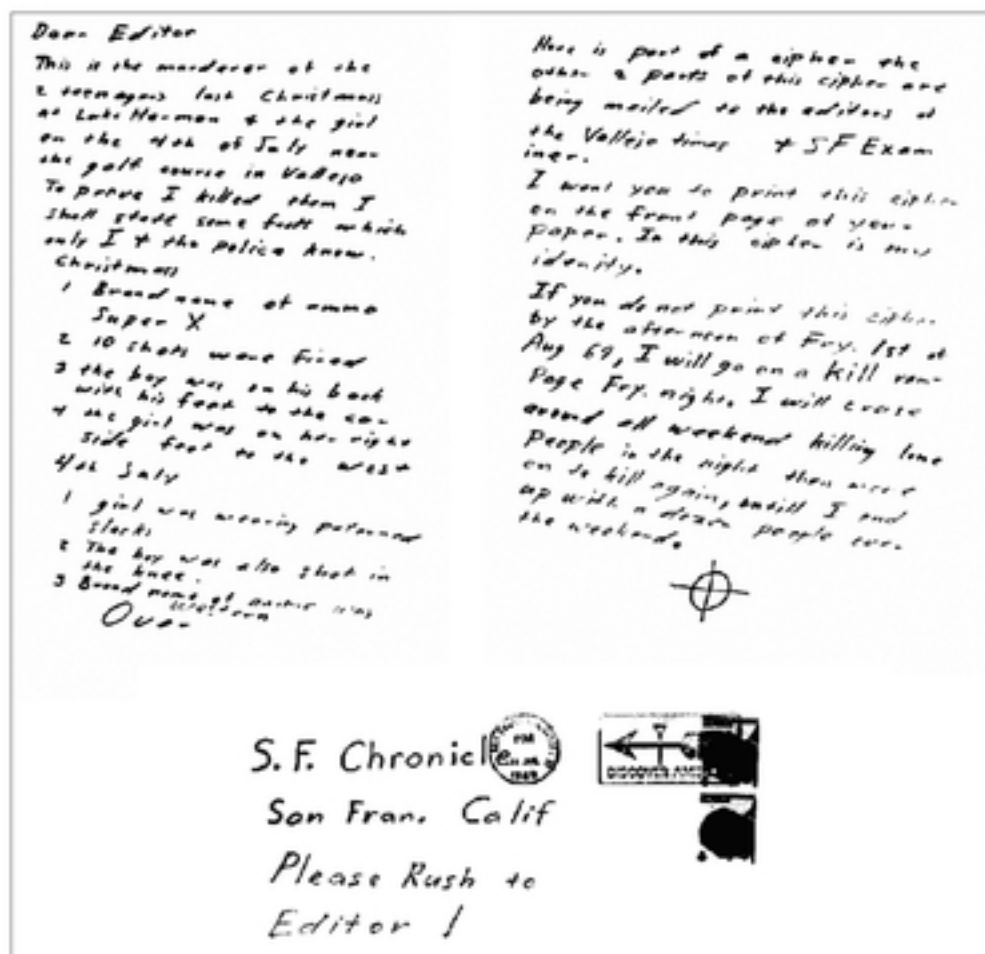 Dear Editor
This is the murderer of the
2 teenagers last Christmass
at Lake Herman & the girl
on the 4th of July near
the golf course in Vallejo
To prove I killed them I
shall state some facts which
only I & the police know.
Christmass
1 Brand name of ammo
Super X
2 10 shots were fired
3 the boy was on his back
with his feet to the car
4 the girl was on her right
side feet to the west
4th July
1 girl was wearing paterned
slacks
2 The boy was also shot in
the knee.
3 Brand name of ammo was
western
Over
Here is part of a cipher the
other 2 parts of this cipher are
being mailed to the editors of
the Vallejo times & SF Exam
iner.
I want you to print this cipher
on the front page of your
paper. In this cipher is my
idenity.
If you do not print this cipher
by the afternoon of Fry. 1st of
Aug 69, I will go on a kill ram-
Page Fry. night. I will cruse
around all weekend killing lone
people in the night then move
on to kill again, untill I end
up with a dozen people over
the weekend.
S.F. Chronicle
San Fran. Calif
Please Rush to
Editor !
PM
1969
DISCOVER